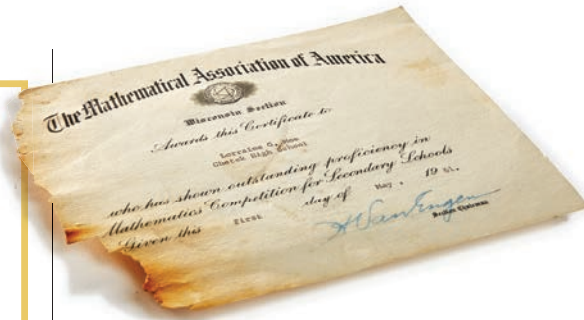 The Mathematical Association of America
Wisconsin Section
Awards this Certificate to
Lorraine
High School
who has shown outstanding proficiency in
Mathematics Competition for Secondary Schools
Given this first day of May, 19 61.
H Van Engen
Section Chairman